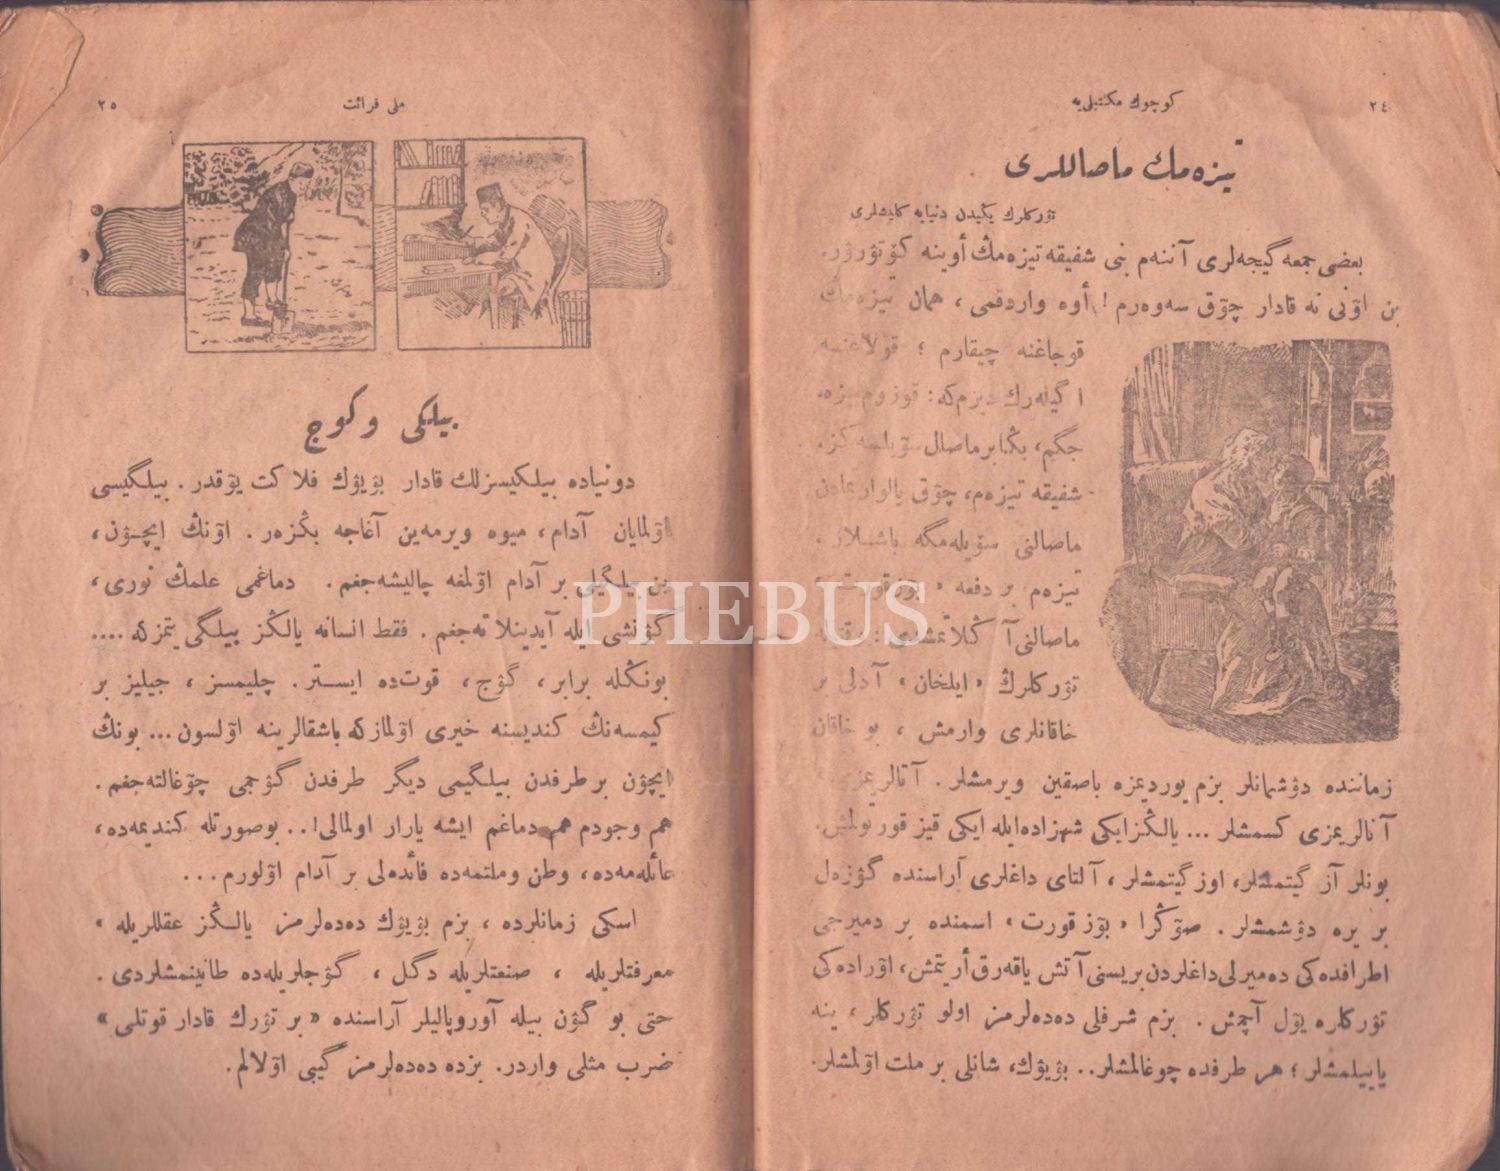 ٢٤
كوچوك مكتبلى‌يه
تيزه‌مك ماصاللرى
تۆركلرك يڭيدن دنيايه كليشلرى
بعضى جمعه گيجه‌لرى آننه‌م بنى شفيقه تيزه‌مڭ أوينه كۆتۆرۆر.
بن اۆنى نه قادار چۆق سه‌وه‌رم ! أوه واردقمى ، همان تيزه‌مڭ
قوجاغنه چيقارم ؛ قولاغنه
اگيله‌رك ديرم‌كه : قوزوم تيزه‌
جگم، بڭا بر ماصال سۆيلسه‌كز.
شفيقه تيزه‌م، چۆق يالوارتمادن
ماصالنى سۆيله‌مگه باشلار.
تيزه‌م بر دفعه « بوزقورت »
ماصالنى آڭلاتمشدى :
تۆركلرڭ « ايلخان » آدلى بر
خاقانلرى وارمش ، بو خاقان
زماننده دۆشمانلر بزم يورديمزه باصقين ويرمشلر . آتالريمزى ،
آنالريمزى كسمشلر ... يالڭز ايكى شهزاده ايله ايكى قيز قورتولمش.
بونلر آز گيتمشلر، اوز گيتمشلر ، آلتاى داغلرى آراسنده گۆزه‌ل
بر يره دۆشمشلر . صۆڭرا « بۆز قورت » اسمنده بر دميرجى
اطرافده‌كى ده‌ميرلى داغلردن بريسنى آتش ياقه‌رق أريتمش، اۆراده‌كى
تۆركلره يۆل آچمش . بزم شرفلى ده‌ده‌لرمز اولو تۆركلر ، ينه
يايلمشلر ؛ هر طرفده چوغالمشلر .. بۆيۆك، شانلى بر ملت اۆلمشلر.
ملى قرائت
٢٥
بيلكى و كوج
دونياده بيلكيسزلك قادار بۆيۆك فلاكت يۆقدر . بيلگيسى
اۆلمايان آدام ، ميوه ويرمه‌ين آغاجه بڭزه‌ر . اۆنڭ ايچۆن ،
بن بيلگيلى بر آدام اۆلمغه چاليشه‌جغم . دماغمى علمڭ نورى ،
گۆنشى ايله آيدينلاته‌جغم . فقط انسانه يالڭز بيلگى يتمزكه ....
بونڭله برابر ، گۆج ، قوت‌ده ايستر . چليمسز ، جيليز بر
كيمسه‌نڭ كنديسنه خيرى اۆلمازكه باشقالرينه اۆلسون ... بونڭ
ايچۆن بر طرفدن بيلگيمى ديگر طرفدن گۆجمى چۆغالته‌جغم .
هم وجودم هم دماغم ايشه يارار اولمالى !.. بوصورتله كنديمه‌ده ،
عائله‌مه‌ده ، وطن وملتمه‌ده فائده‌لى بر آدام اۆلورم ...
اسكى زمانلرده ، بزم بۆيۆك ده‌ده‌لرمز يالڭز عقللريله ،
معرفتلريله ، صنعتلريله دگل ، گۆجلريله‌ده طانينمشلردى .
حتى بو گۆن بيله آوروپاليلر آراسنده « بر تۆرك قادار قوتلى »
ضرب مثلى واردر . بزده ده‌ده‌لرمز گيبى اۆلالم .
PHEBUS